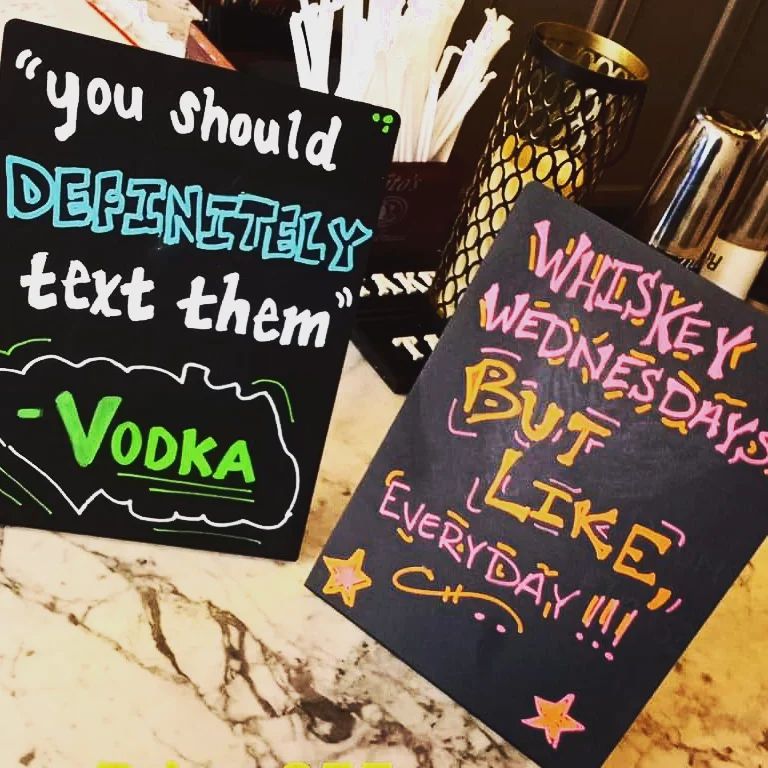 "you should
DEFINITELY
text them"
- VODKA
WHISKEY
WEDNESDAYS
BUT
LIKE,
EVERYDAY!!!